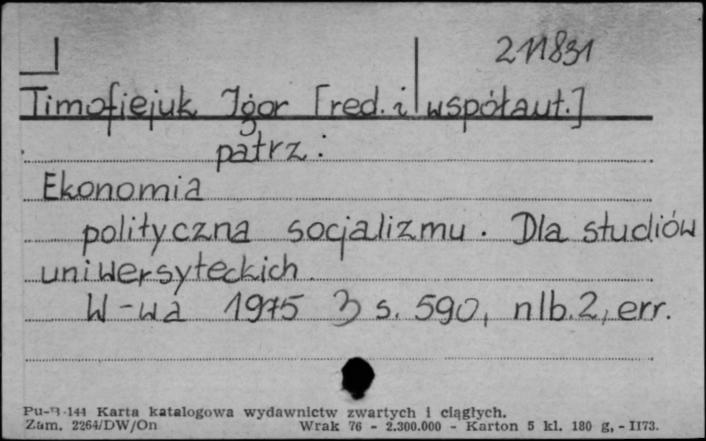 211831
Timofiejuk Igor [red. i współaut.]
patrz:
Ekonomia
polityczna socjalizmu. Dla studiów
uniwersyteckich.
W-wa 1975 s. 590, nlb. 2, err.
Pu-B-144 Karta katalogowa wydawnictw zwartych i ciągłych.
Zam. 2264/DW/On Wrak 76 - 2.300.000 - Karton 5 kl. 180 g, - II73.